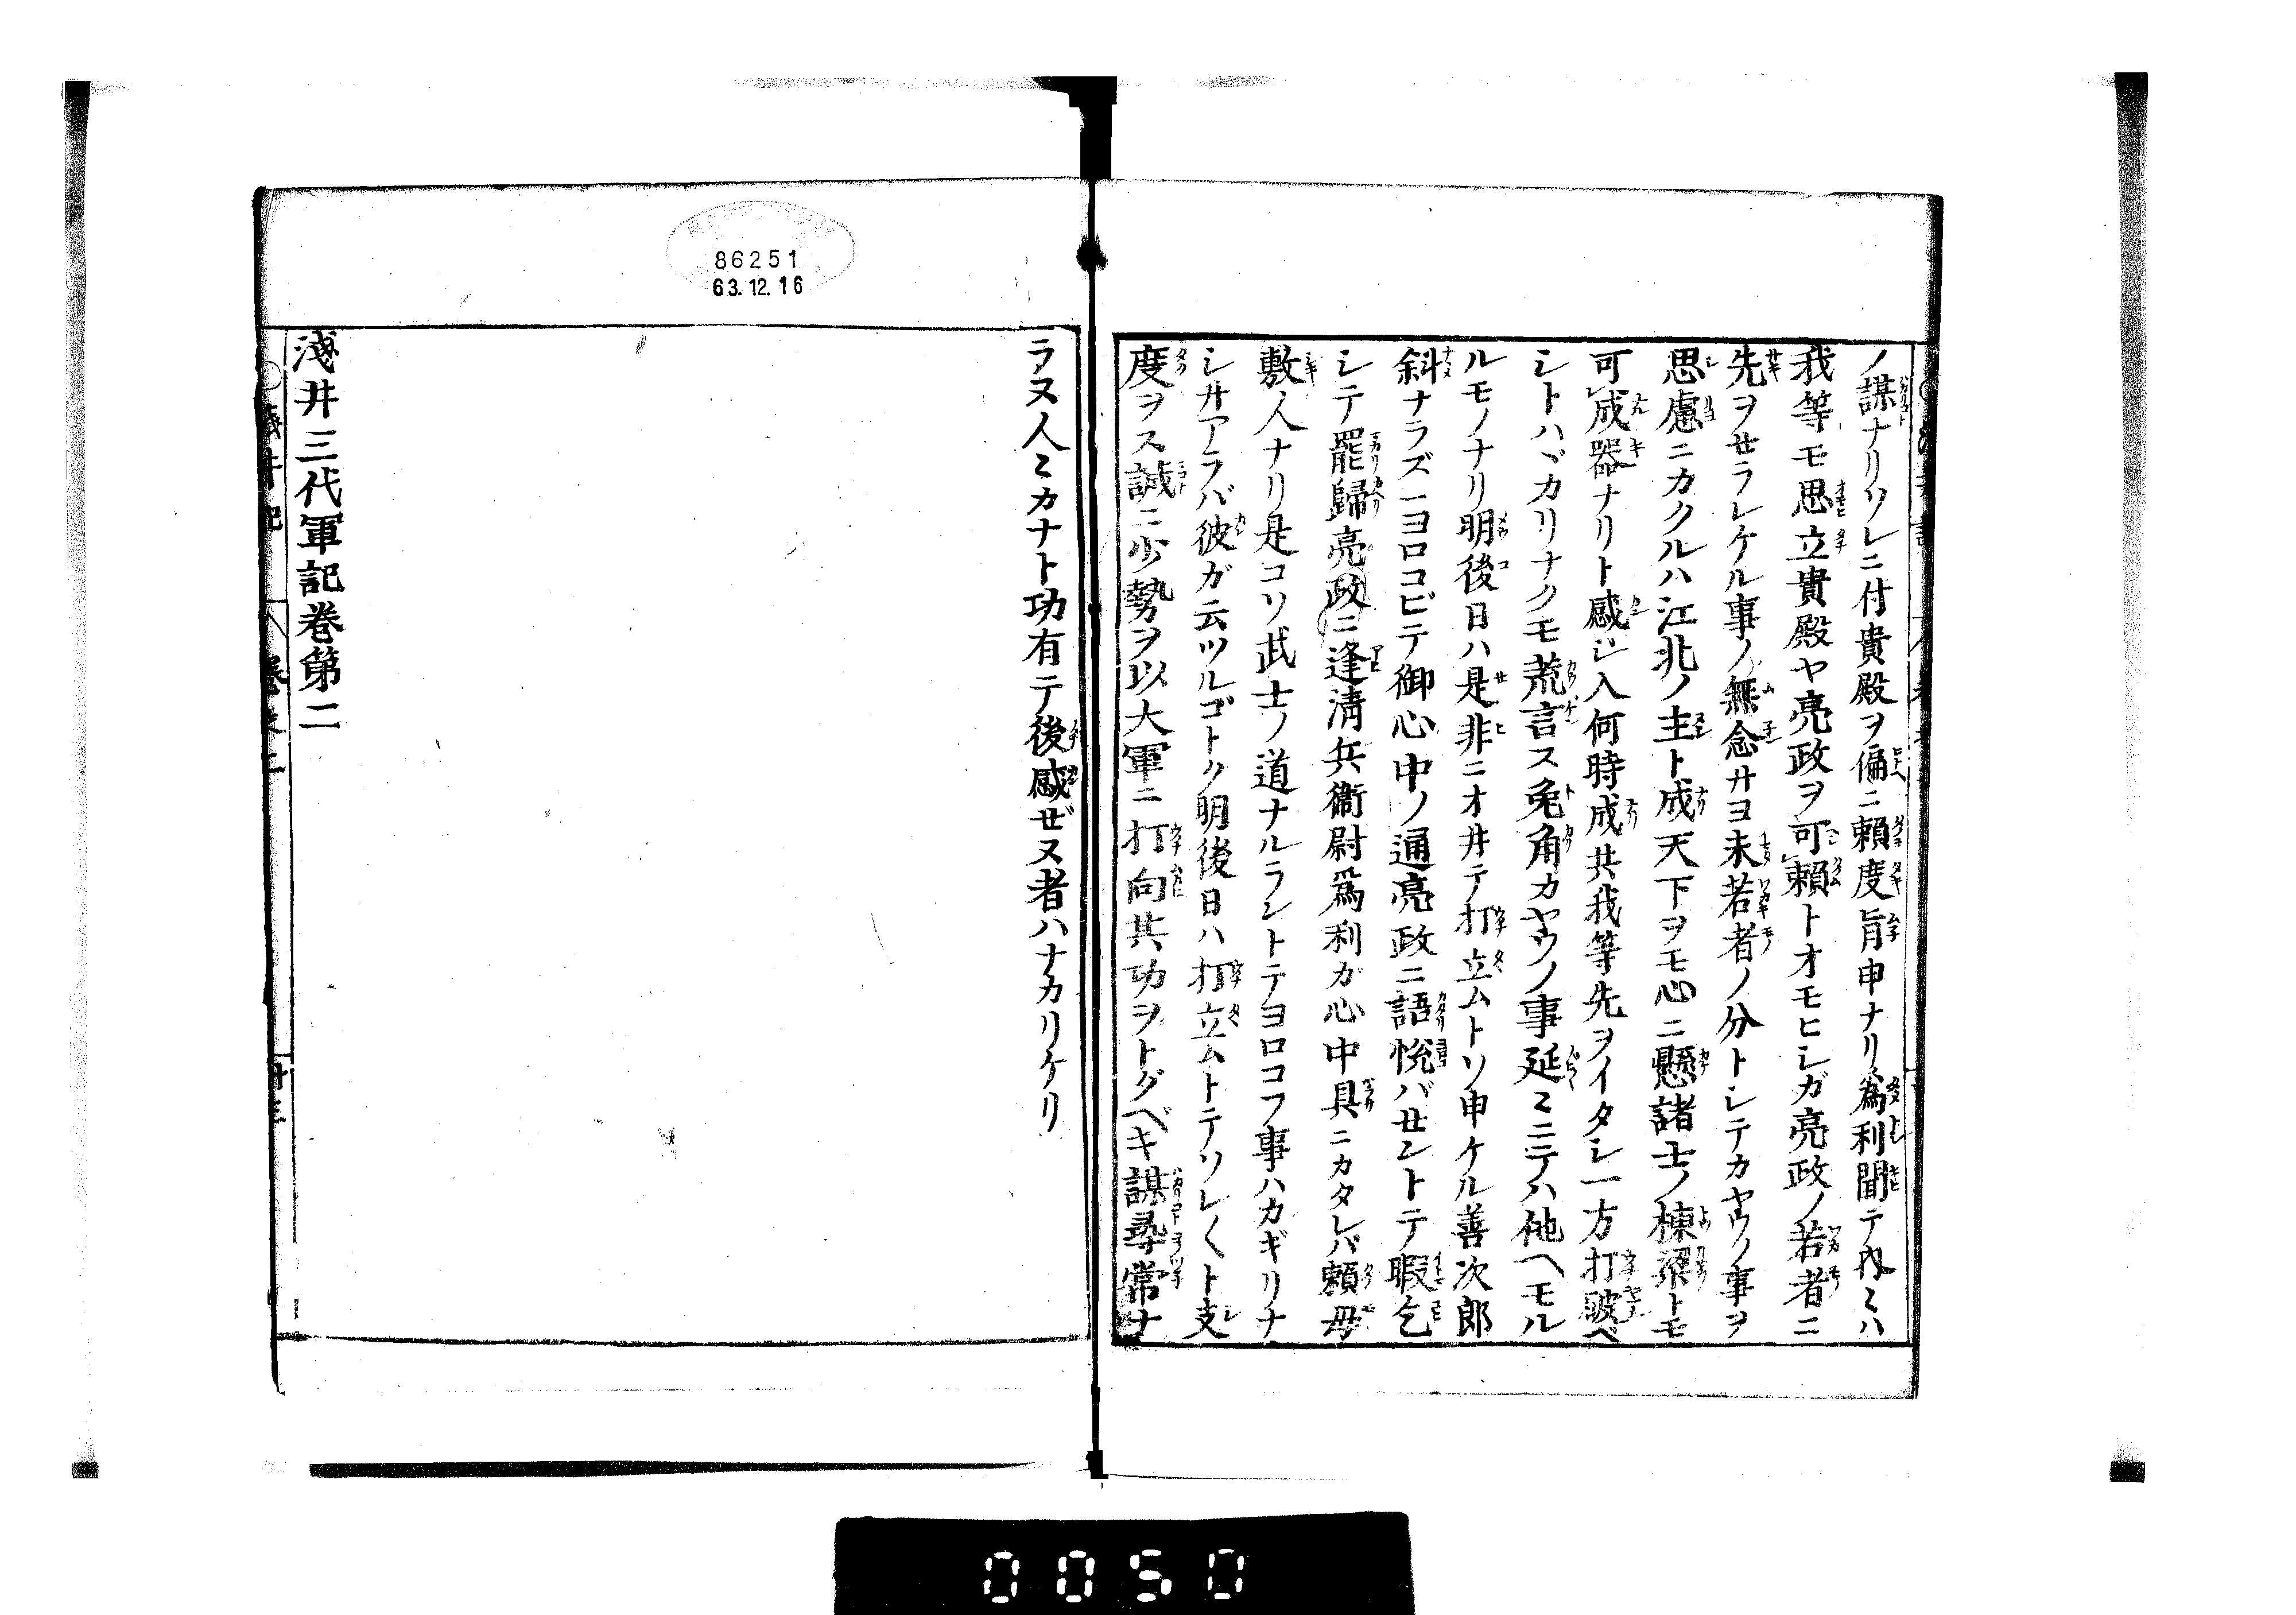 ノ謀ナリソレニ付貴殿ヲ偏ニ頼度旨申ナリ為利聞テ内〻ハ
我等モ思立貴殿ヤ亮政ヲ可頼トオモヒシガ亮政ノ若者ニ
先ヲせラレケル事ノ無念サヨ未若者ノ分トシテカヤウノ事ヲ
思慮ニカクルハ江北ノ主ト成天下ヲモ心ニ懸諸士ノ棟梁トモ
可成器ナリト感ジ入何時成共我等先ヲイタシ一方打破ベ
シトハヾカリナクモ荒言ス兎角カヤウノ事延〻ニテハ他ヘモル
ルモノナリ明後日ハ是非ニオ井テ打立ムトソ申ケル善次郎
斜ナラズ一ヨロコビテ御心中ノ通亮政ニ語悦バせントテ暇乞
シテ罷歸亮政ニ逢清兵衞尉爲利ガ心中具ニカタレバ頼母
敷人ナリ是コソ武士ノ道ナルラントテヨロコフ事ハカギリナ
シ井アラバ彼ガ云ツルゴトク明後日ハ打立ムトテソレ〱ト支
度ヲス誠ニ少勢ヲ以大軍ニ打向其功ヲトグベキ謀尋常ナ
ラヌ人ミカナト功有テ後感ぜヌ者ハナカリケリ
淺井三代軍記巻第二
86251
63.12.16
0050